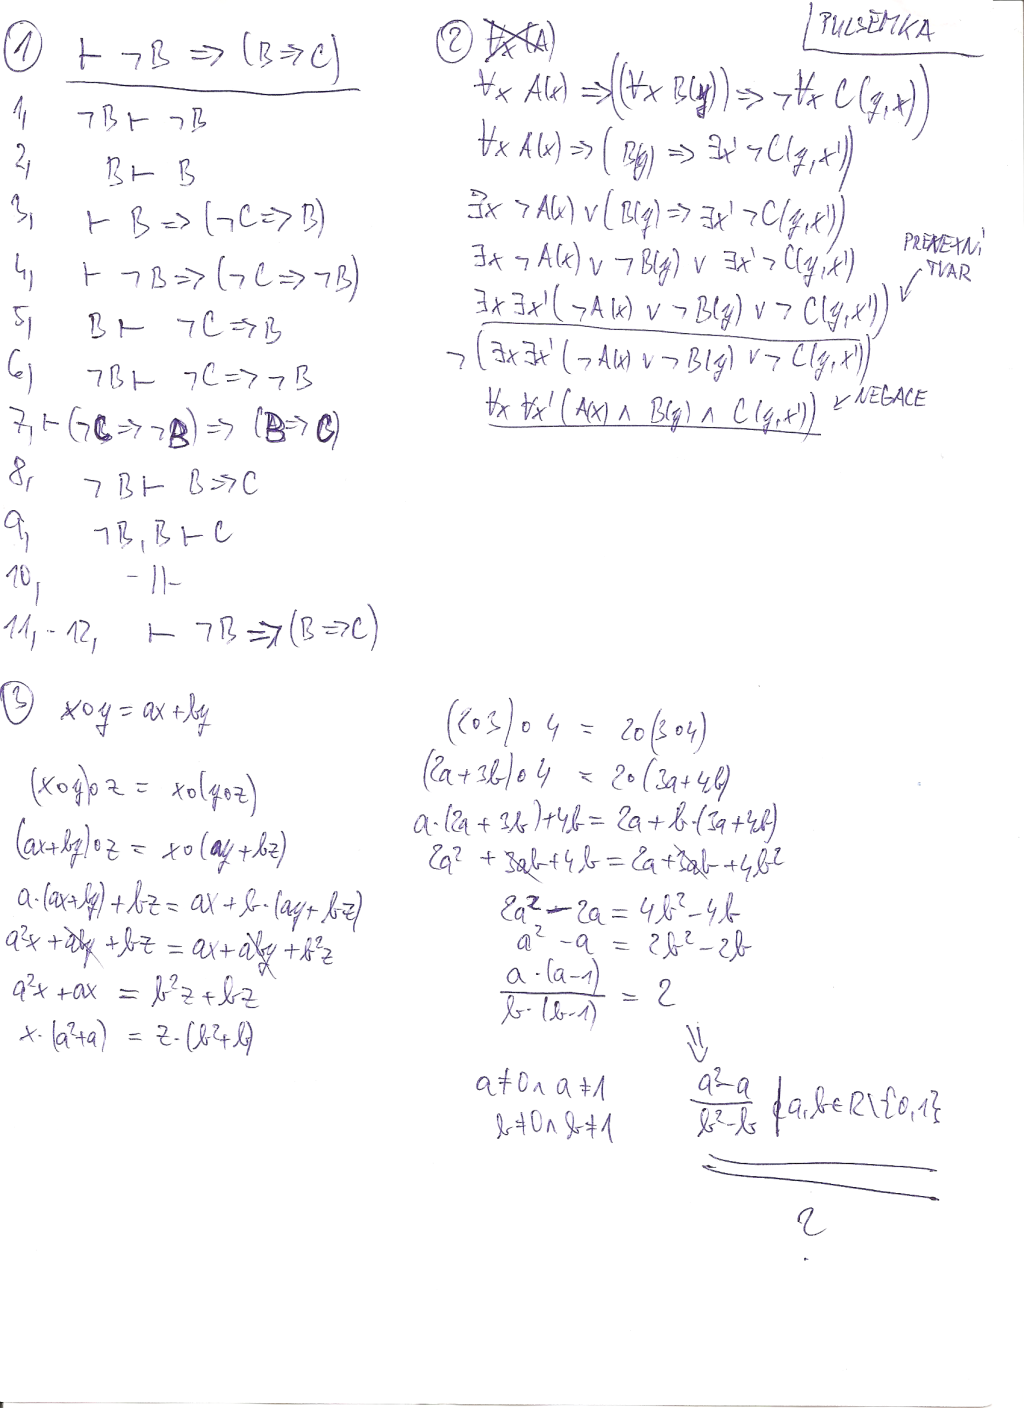 PULSEMKA
① ⊢ ¬B ⇒ (B ⇒ C)
1, ¬B ⊢ ¬B
2, B ⊢ B
3, ⊢ B ⇒ (¬C ⇒ B)
4, ⊢ ¬B ⇒ (¬C ⇒ ¬B)
5, B ⊢ ¬C ⇒ B
6, ¬B ⊢ ¬C ⇒ ¬B
7, ⊢ (¬C ⇒ ¬B) ⇒ (B ⇒ C)
8, ¬B ⊢ B ⇒ C
9, ¬B, B ⊢ C
10, -||-
11, - 12, ⊢ ¬B ⇒ (B ⇒ C)
②
∀x A(x) ⇒ ((∀x B(y)) ⇒ ¬∀x C(y,x))
∀x A(x) ⇒ (B(y) ⇒ ∃x' ¬C(y,x'))
∃x ¬A(x) ∨ (B(y) ⇒ ∃x' ¬C(y,x'))
∃x ¬A(x) ∨ ¬B(y) ∨ ∃x' ¬C(y,x')
∃x ∃x' (¬A(x) ∨ ¬B(y) ∨ ¬C(y,x')) ↙ PRENEXNÍ TVAR
¬(∃x ∃x' (¬A(x) ∨ ¬B(y) ∨ ¬C(y,x'))
∀x ∀x' (A(x) ∧ B(y) ∧ C(y,x')) ↙ NEGACE
③ x∘y = ax + by
(x∘y)∘z = x∘(y∘z)
(ax+by)∘z = x∘(ay+bz)
a·(ax+by)+bz = ax+b·(ay+bz)
a²x + aby + bz = ax + aby + b²z
a²x + ax = b²z + bz
x·(a²+a) = z·(b²+b)
(2∘3)∘4 = 2∘(3∘4)
(2a+3b)∘4 = 2∘(3a+4b)
a·(2a+3b)+4b = 2a+b·(3a+4b)
2a² + 3ab + 4b = 2a + 3ab + 4b²
2a² - 2a = 4b² - 4b
a² - a = 2b² - 2b
a·(a-1)
b·(b-1) = 2
⇓
a≠0 ∧ a≠1
b≠0 ∧ b≠1
a²-a
b²-b | a,b∈R\{0,1}
?